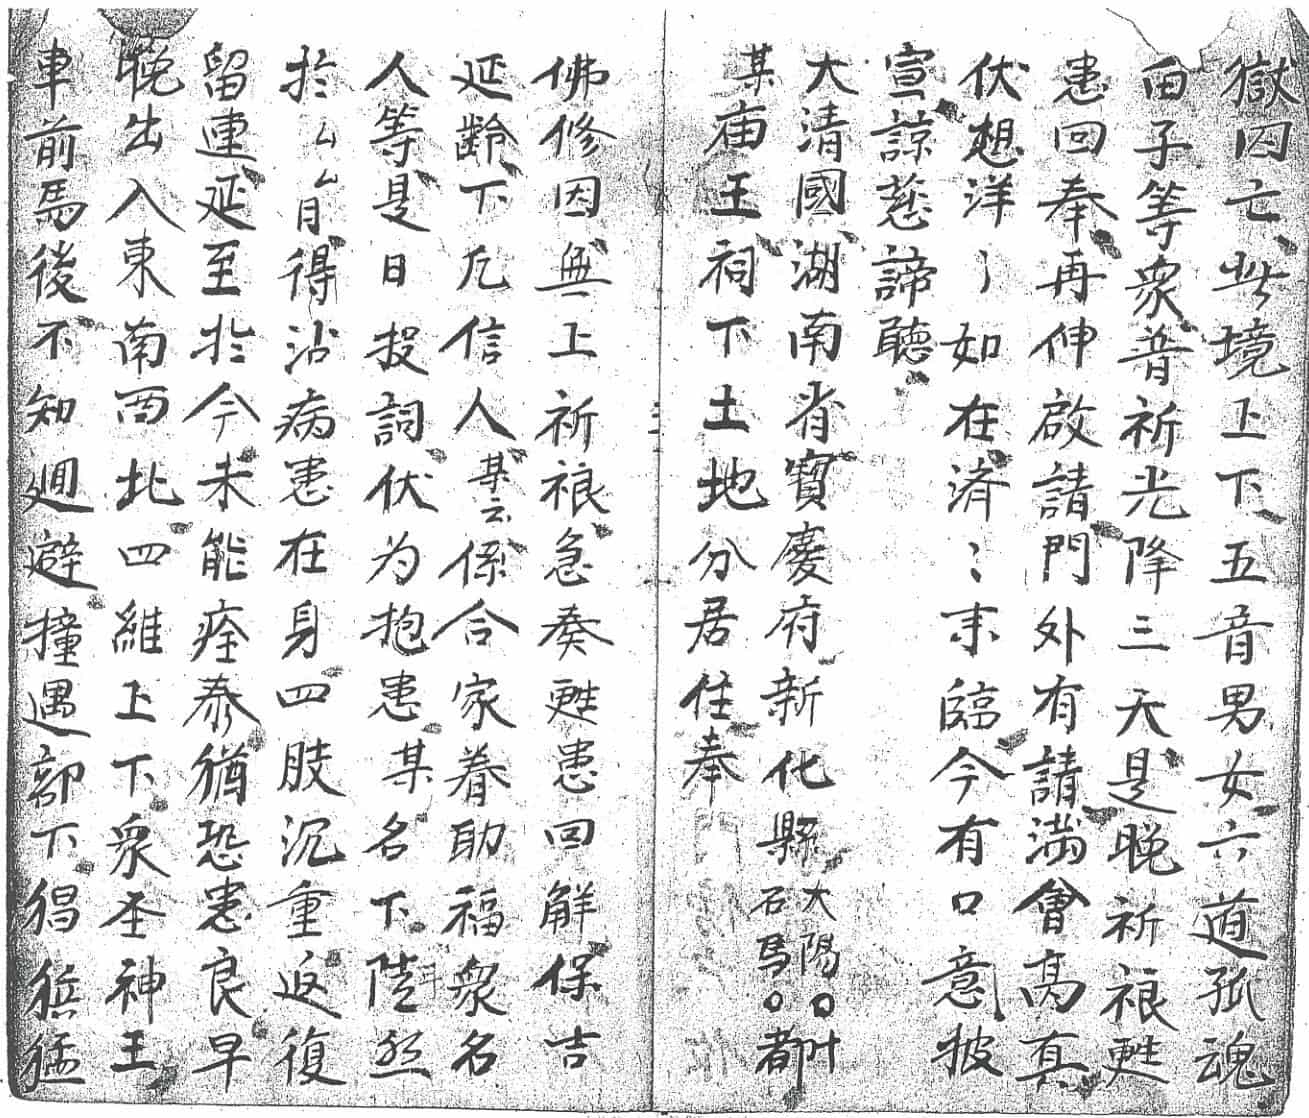 獄囚亡此境上下五音男女六道孤魂
由子等眾普祈光降三天是晚祈禳甦
患回奉再伸啟請門外有請滿會高真
伏想洋〻如在済〻来臨今有口意披
宣諒慈諦聽
大清國湖南省寶慶府新化縣大陽〇
石馬〇都
某庙王祠下土地分居住奉
佛修因無上祈禳急奏甦患回觧保吉
延齡下凢信人某云係合家眷助福眾名
人等是日投詞伏为抱患某名下陸然
於厶年厶月得沾病患在身四肢沉重返復
留連延至於今未能痊泰猶恐患良早
晚出入東南西北四維上下眾圣神王
車前馬後不知廻避撞遇部下猖兵猛